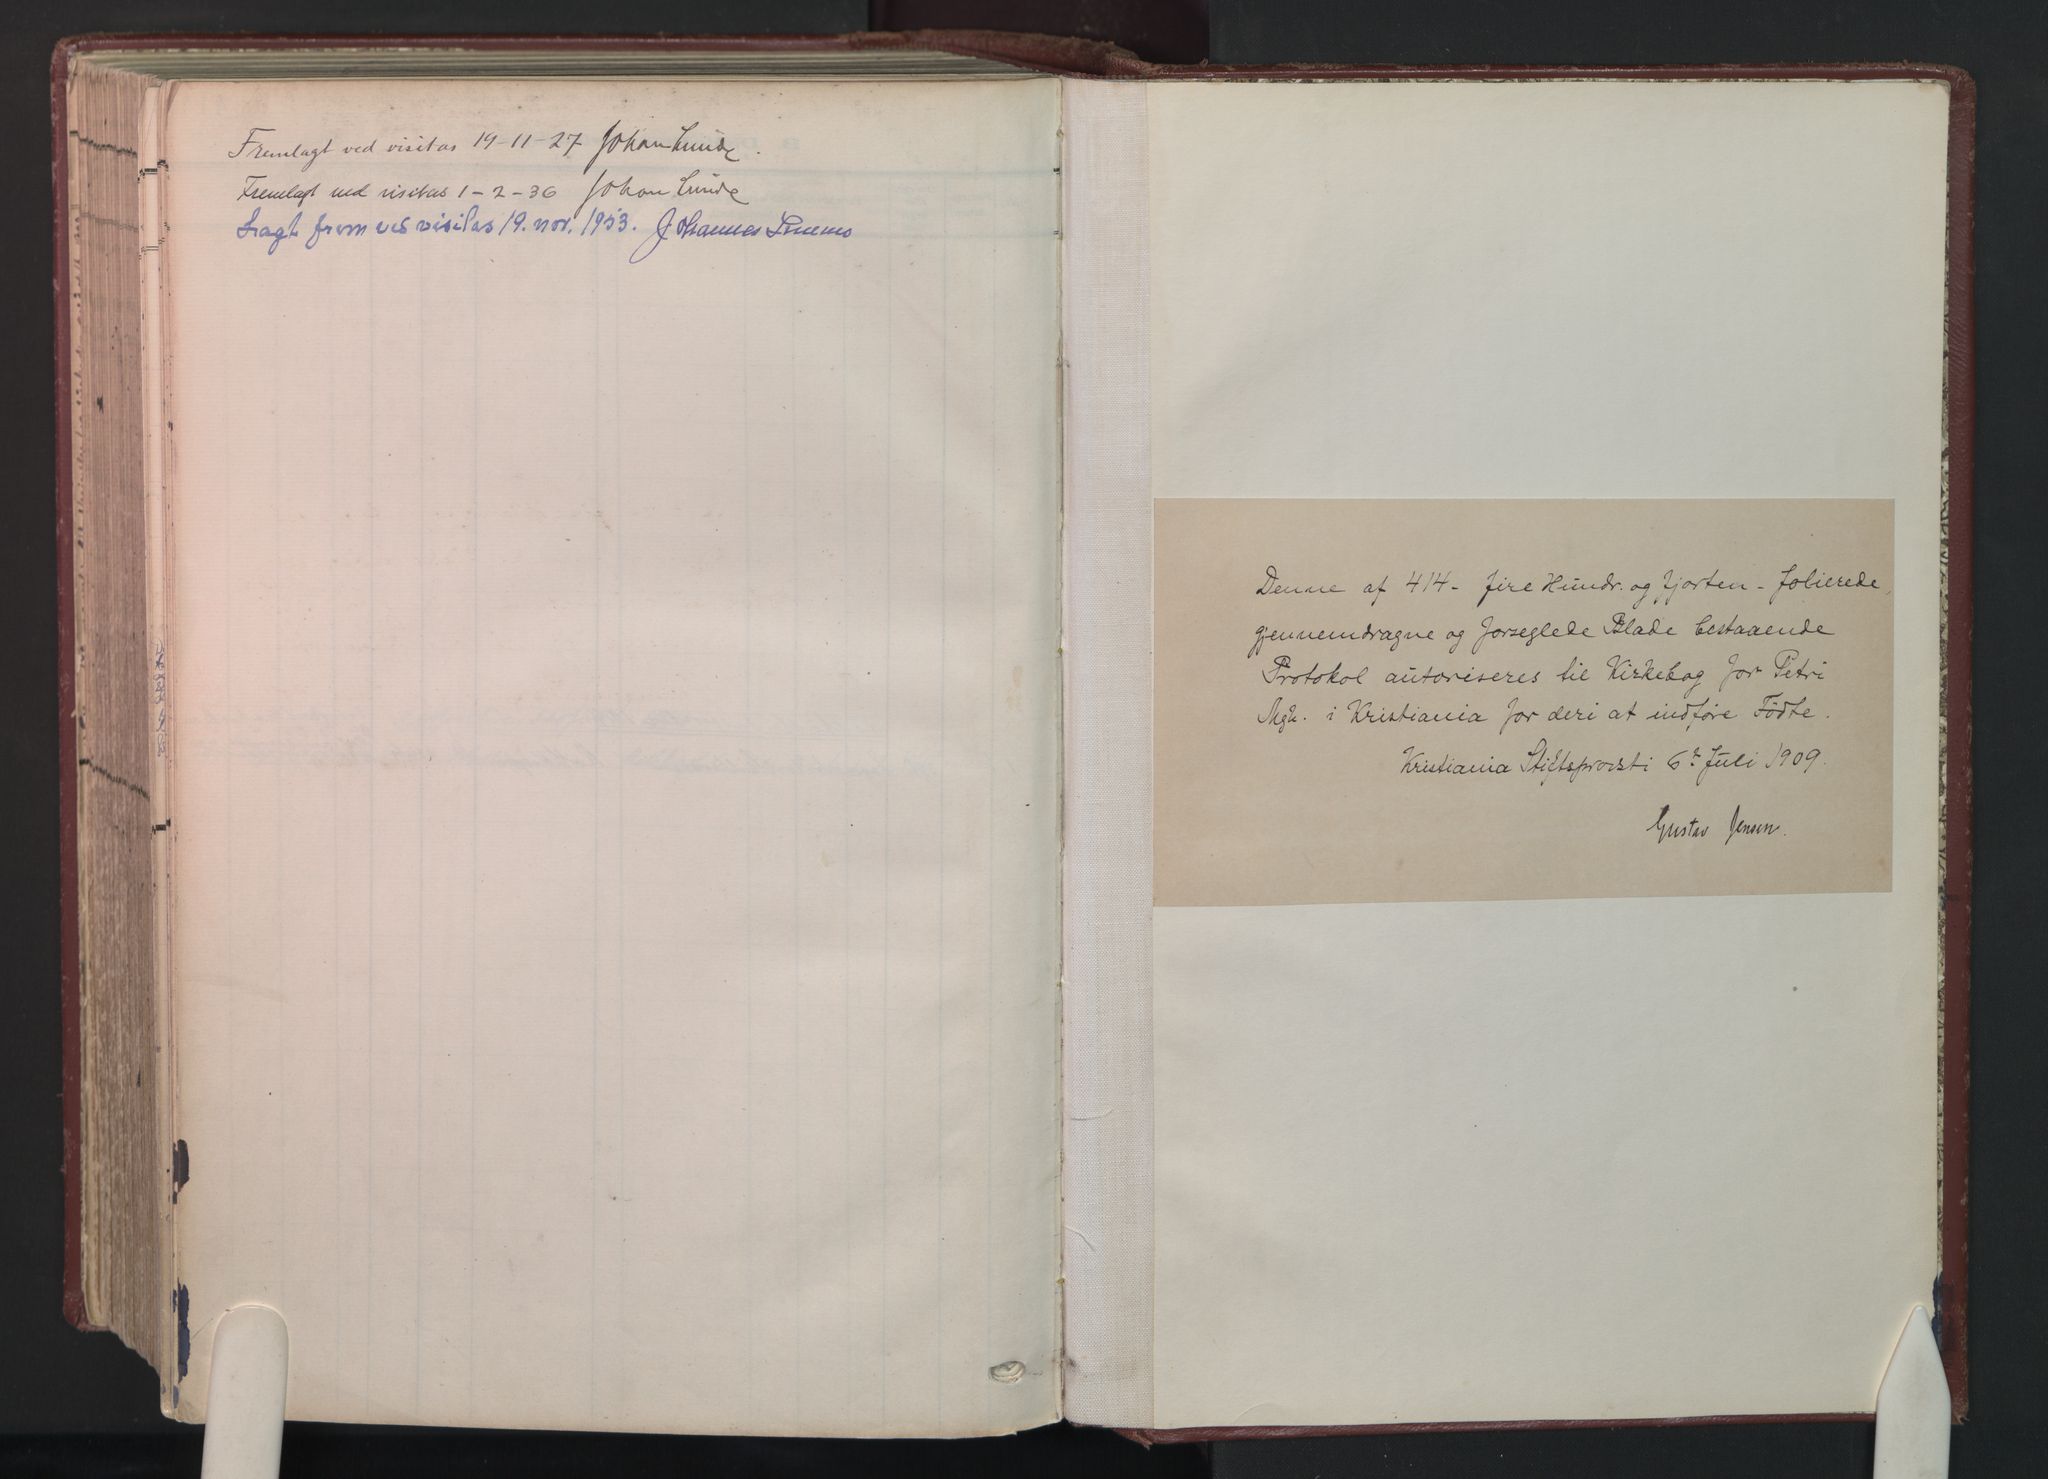 Fremlagt ved visitas 19-11-27 Johan Lunde.
Fremlagt ved visitas 1-2-36 Johan Lunde
Lagt frem ved visitas 19. nov. 1953. Johannes Smemo
Denne af 414 - fire Hundr. og fjorten - folierede,
gjennemdragne og forseglede Blade bestaaende
Protokol autoriseres til Kirkebog for Petri
Mgh. i Kristiania for deri at indføre Fødte.
Kristiania Stiftsprovsti 6te Juli 1909.
Gustav Jensen.